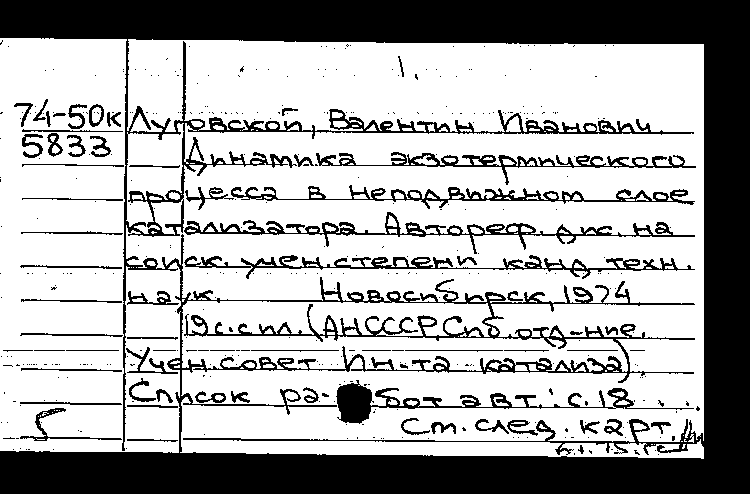 1.
74-50к Луговской, Валентин Иванович.
5833 Динамика экзотермического
процесса в неподвижном слое
катализатора. Автореф. дис. на
соиск. учен. степени канд. техн.
наук. Новосибирск, 1974
19 с. с ил. (АН СССР. Сиб. отд-ние.
Учен. совет Ин-та катализа).
Список ра- бот авт.: с. 18
5 См. след. карт.